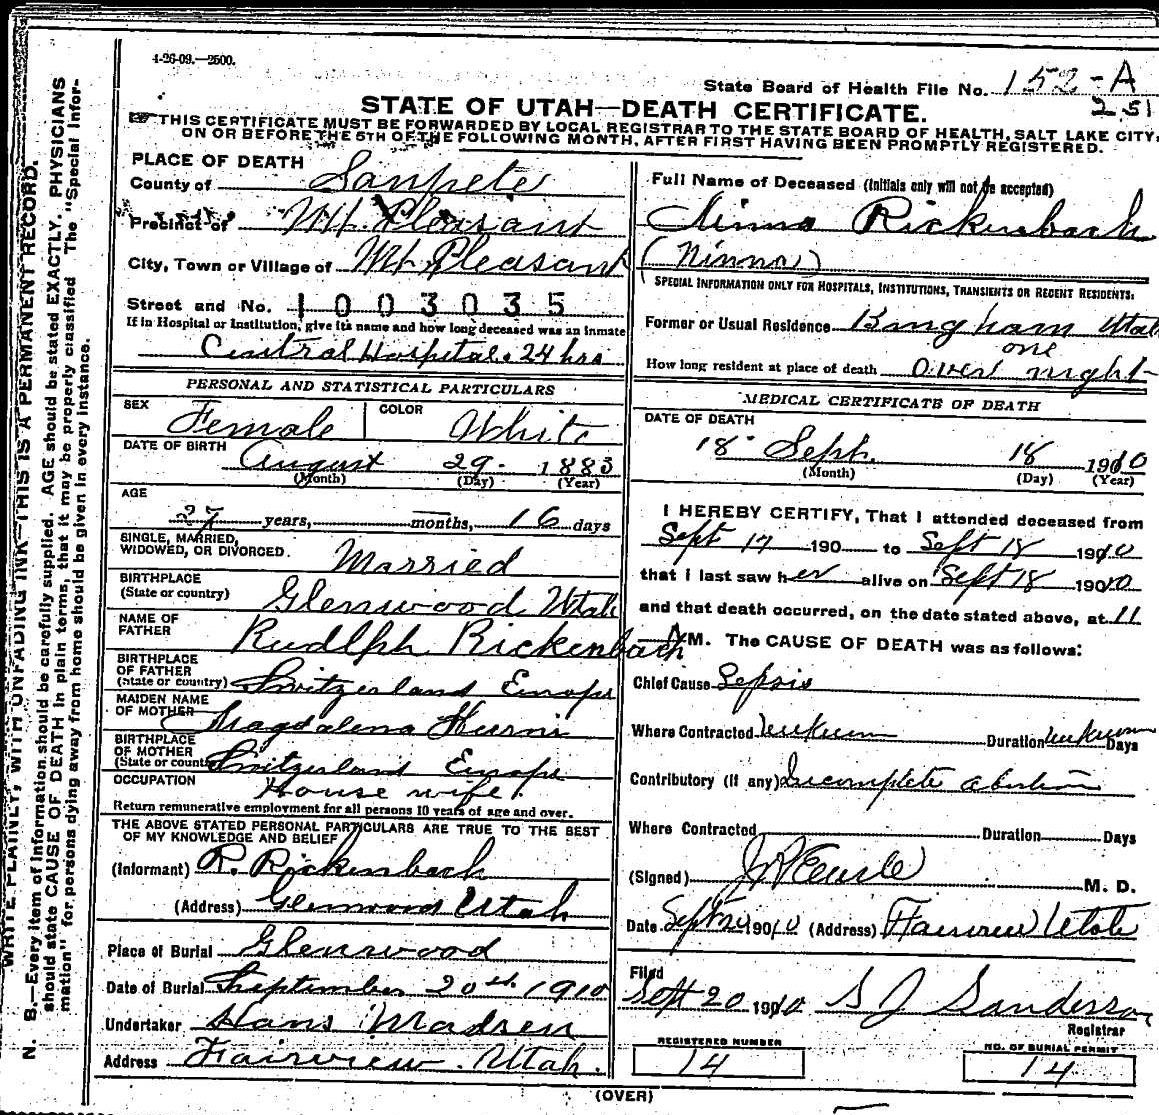 4-26-09.—2500.
State Board of Health File No. 152-A
251
STATE OF UTAH—DEATH CERTIFICATE.
THIS CERTIFICATE MUST BE FORWARDED BY LOCAL REGISTRAR TO THE STATE BOARD OF HEALTH, SALT LAKE CITY,
ON OR BEFORE THE 5TH OF THE FOLLOWING MONTH, AFTER FIRST HAVING BEEN PROMPTLY REGISTERED.
PLACE OF DEATH
County of Sanpete
Precinct of Mt. Pleasant
City, Town or Village of Mt. Pleasant
Street and No. 1003035
If in Hospital or Institution, give its name and how long deceased was an inmate
Central Hospital. 24 hrs
PERSONAL AND STATISTICAL PARTICULARS
SEX Female COLOR White
DATE OF BIRTH August 29 - 1883
(Month) (Day) (Year)
AGE
27 years, months, 16 days
SINGLE, MARRIED,
WIDOWED, OR DIVORCED. Married
BIRTHPLACE
(State or country) Glenwood Utah
NAME OF
FATHER Rudlph Rickenbach
BIRTHPLACE
OF FATHER
(State or country) Switzerland Europe
MAIDEN NAME
OF MOTHER Magdalena Hurni
BIRTHPLACE
OF MOTHER
(State or country) Switzerland Europe
OCCUPATION House wife.
Return remunerative employment for all persons 10 years of age and over.
THE ABOVE STATED PERSONAL PARTICULARS ARE TRUE TO THE BEST
OF MY KNOWLEDGE AND BELIEF
(Informant) R. Rickenbach
(Address) Glenwood Utah
Place of Burial Glenwood
Date of Burial September 20th 1910
Undertaker Hans Madsen
Address Fairview. Utah.
Full Name of Deceased (Initials only will not be accepted)
Ninna Rickenbach
(Ninna)
SPECIAL INFORMATION ONLY FOR HOSPITALS, INSTITUTIONS, TRANSIENTS OR RECENT RESIDENTS:
Former or Usual Residence Bingham Utah
one
How long resident at place of death Over night
MEDICAL CERTIFICATE OF DEATH
DATE OF DEATH
18 Sept. 18 1910
(Month) (Day) (Year)
I HEREBY CERTIFY, That I attended deceased from
Sept 17 190 to Sept 18 1910
that I last saw her alive on Sept 18 1910
and that death occurred, on the date stated above, at 11
A M. The CAUSE OF DEATH was as follows:
Chief Cause Sepsis
Where Contracted unknown Duration unknown Days
Contributory (if any) Incomplete abortion
Where Contracted Duration Days
(Signed) M. D.
Date Sept 20 1910 (Address) Fairview Utah
Filed
Sept 20 1910 S J Sanderson
Registrar
REGISTERED NUMBER
14
NO. OF BURIAL PERMIT
14
(OVER)
WRITE PLAINLY, WITH UNFADING INK—THIS IS A PERMANENT RECORD.
N. B.—Every item of information should be carefully supplied. AGE should be stated EXACTLY. PHYSICIANS
should state CAUSE OF DEATH in plain terms, that it may be properly classified. The "Special Infor-
mation" for persons dying away from home should be given in every instance.